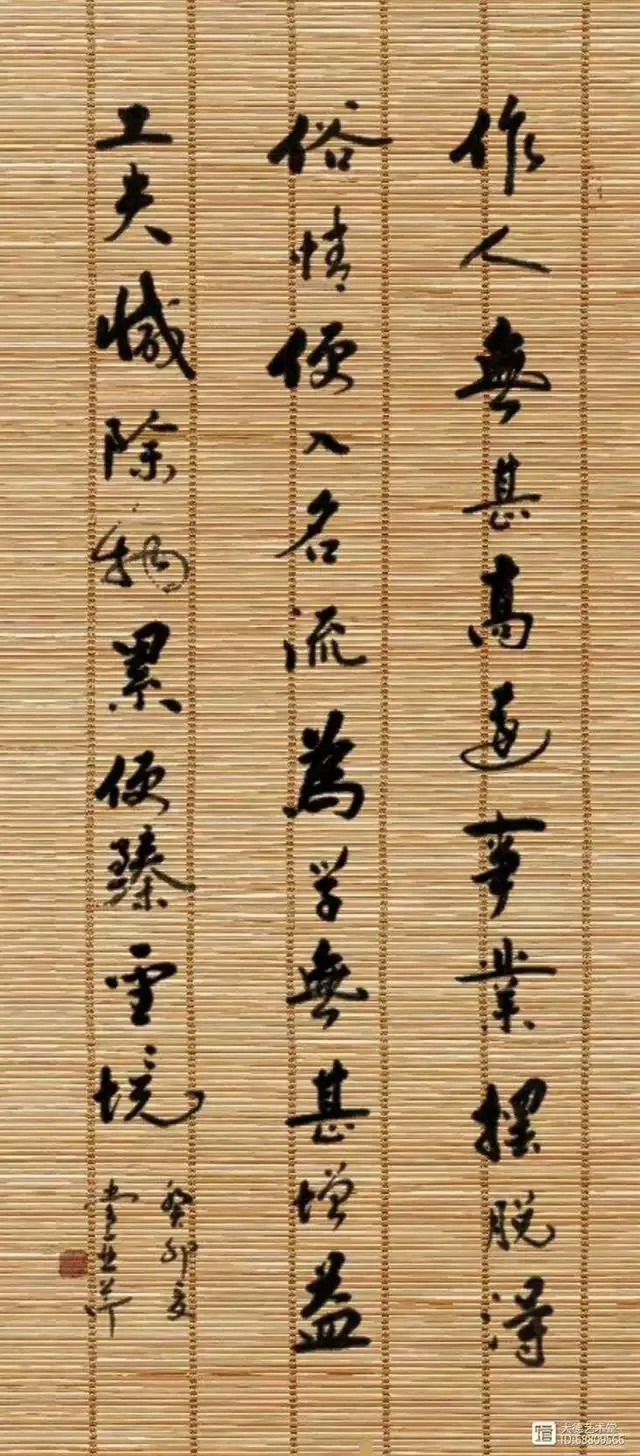 作人無甚高遠事業擺脫得
俗情便入名流為学無甚增益
工夫減除物累便臻聖境
癸卯夏
大德艺术堂
ID:68809566